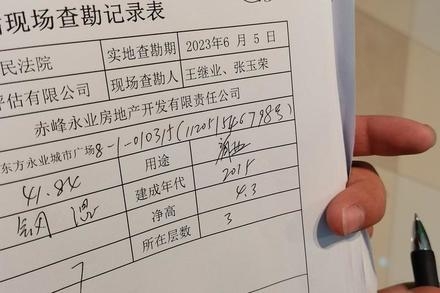 现场查勘记录表
民法院 实地查勘期 2023年6月5日
评估有限公司 现场查勘人 王继业、张玉荣
赤峰永业房地产开发有限责任公司
东方永业城市广场8-1-01031
41.84 用途 商业
钢 混 建成年代 2015
净高 4.3
所在层数 3